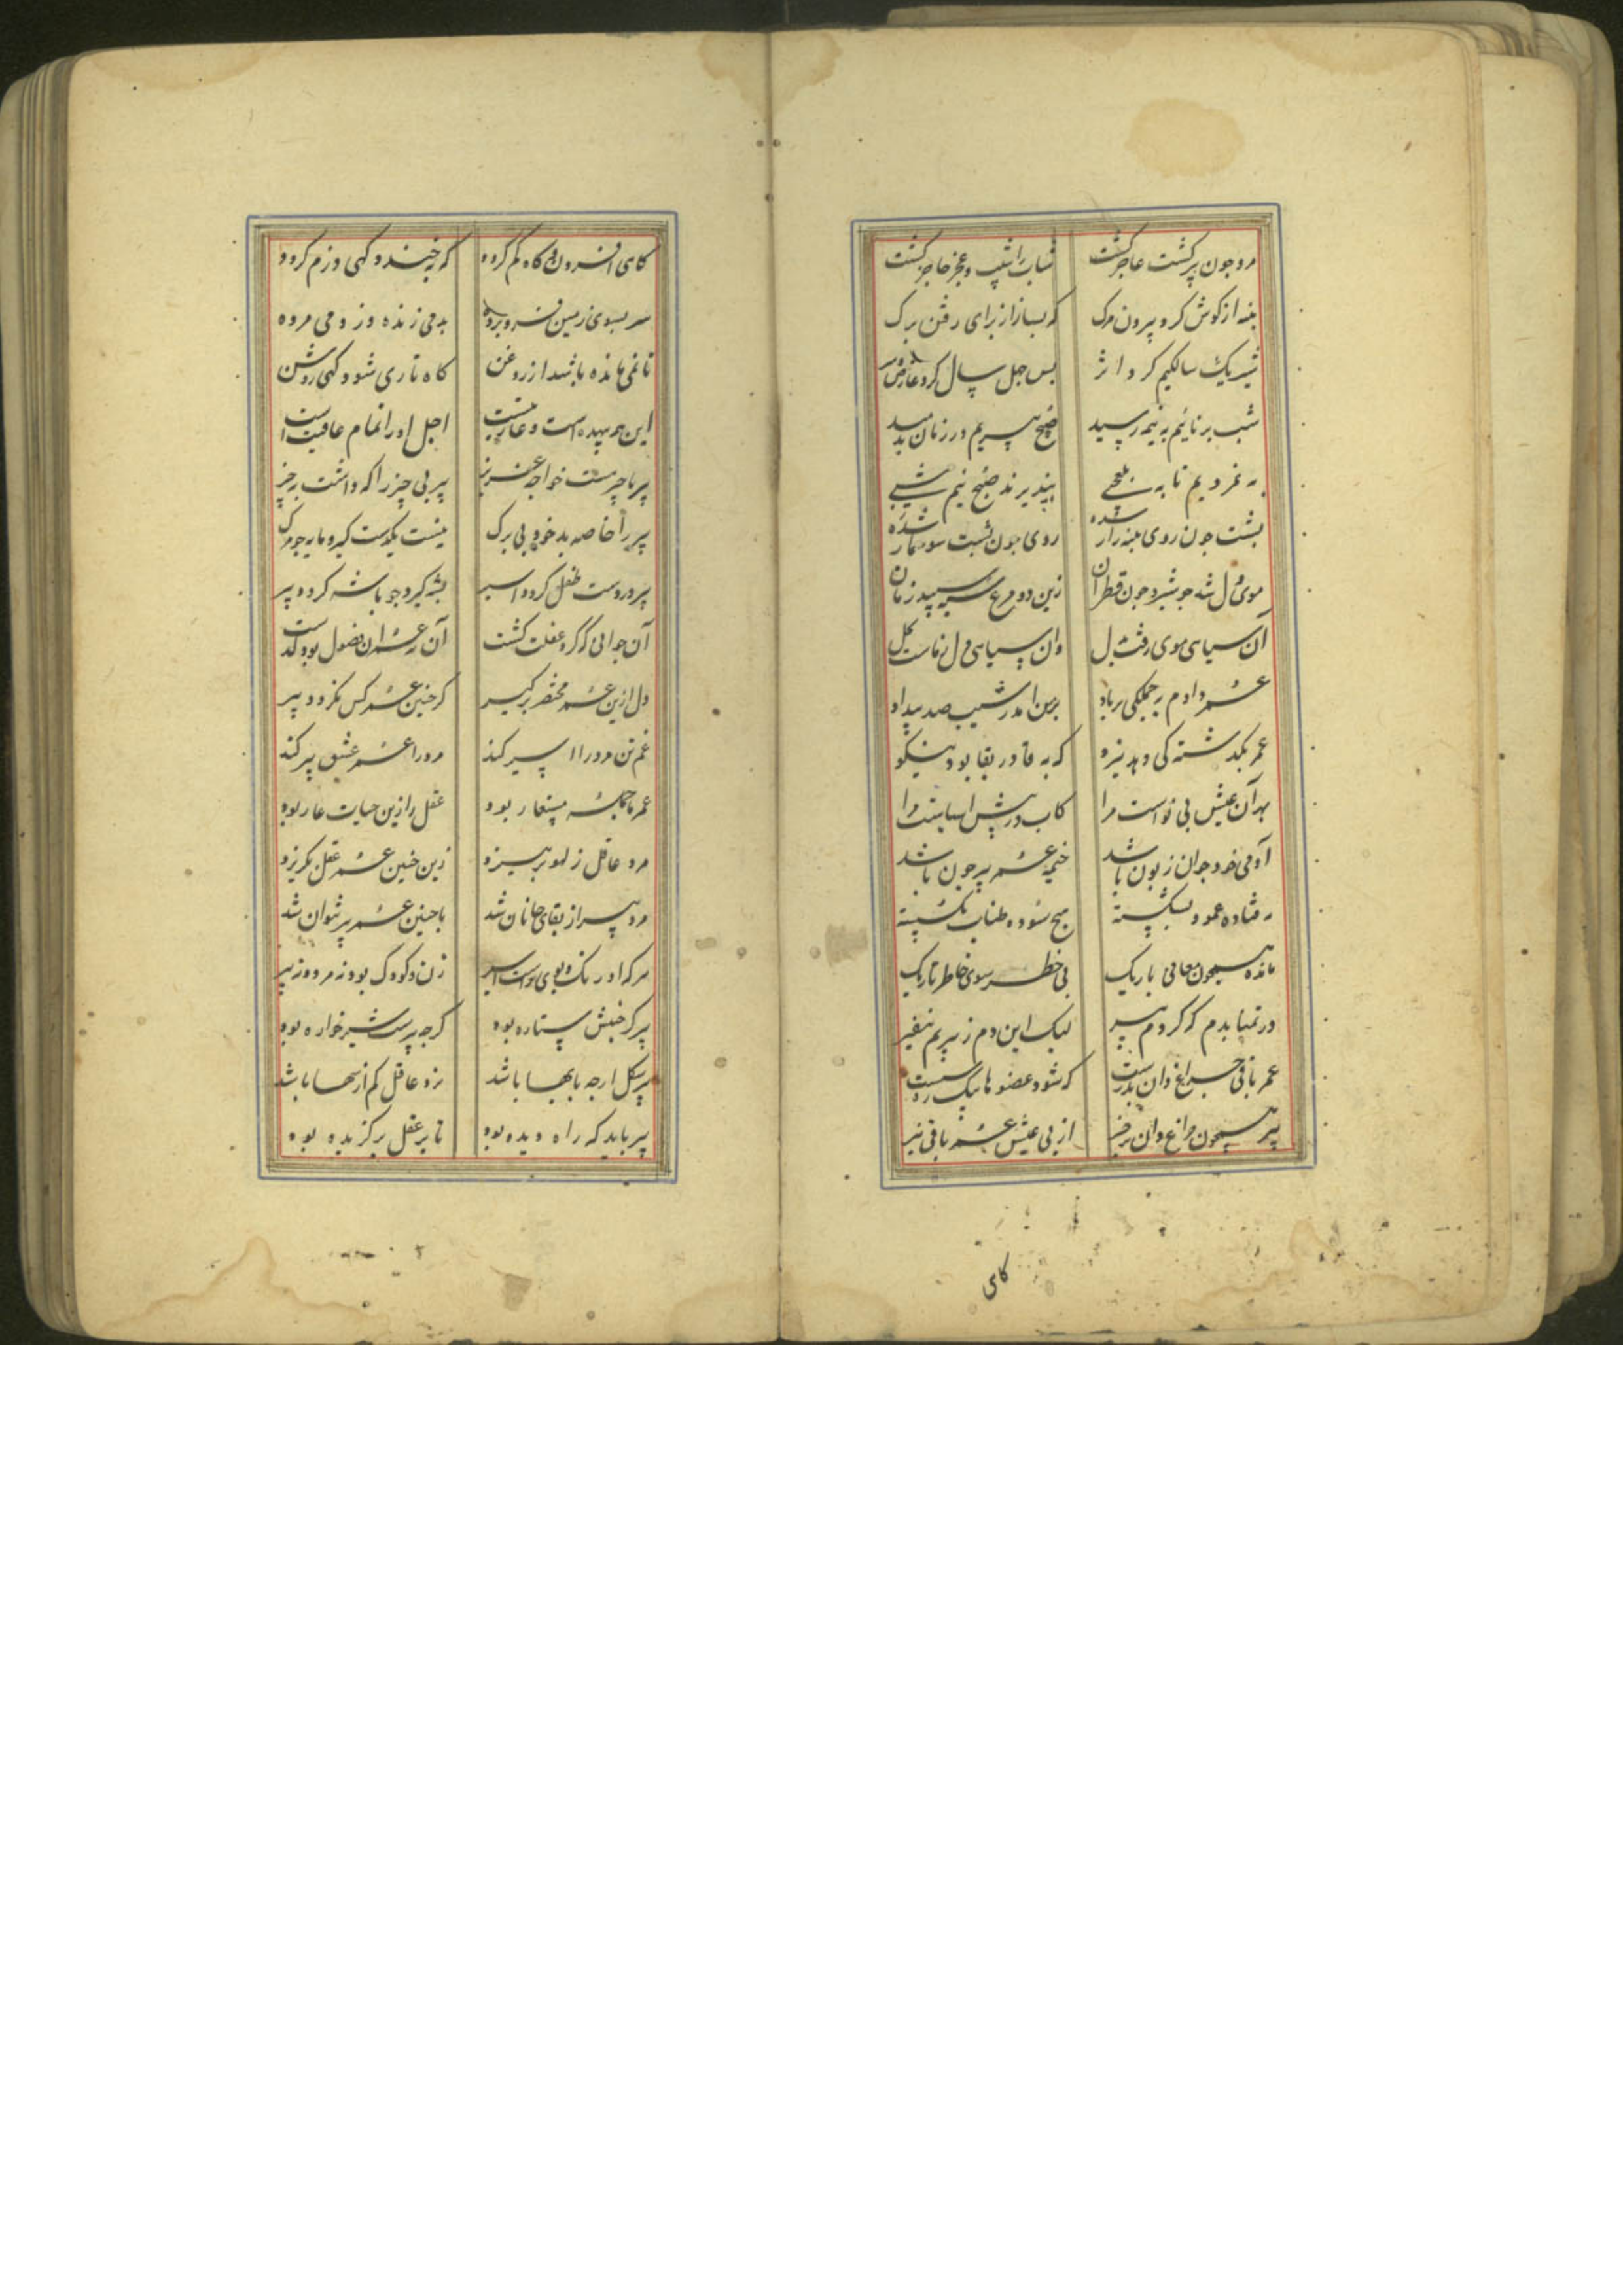 مرد جون پیر کشت عاجز کشت شبابش را شیب و عجز حاجز کشت
بنبه از کوش کرد بیرون مرک که بساز از برای رفتن برک
شیر یک سالکیم کرد اثر بس جل سال کرد عارض
شب برنائیم به نیمه رسید صبح پیریم در زمان بدمید
به نپذیرند صبح نیم شبی
بشت جون روی بنبه زار شده روی جون بشت سوسمار شده
موی دل شد جو شیر و جون قطران زین دو مرغ سیه سپید زمان
آن سیاهی موی رفت بدل وان سیاهی دل نماست بکل
عمر دادم بجملکی بر باد بر من آمد ز شیب صد بیداد
عمر بکذشته کی دهد نیرو که به قا در بقا بود نیکو
بهر آن عیش بی نواست مرا کاب در پیش آسیاست مرا
آدمی خود جوان زبون باشد خیمه عمر پیر جون باشد
بفتاده عمود بشکسته میخ سوده طناب بکسسته
مانده همجون معانی باریک بی خطر سوی خاطر تاریک
در نمیابدم که کردم پیر لیک این دم ز پیریم نفیر
عمر باقی جراغ دان بدرست که شود عضوها یک یک سست
پیر همجون جراغ دان بر خیز از پی عیش عمر باقی نیز
کای
کاهی افزون و کاه کم کردد که بخندد کهی دژم کردد
سر بسوی زمین فرو برده بدمی زنده وز دمی مرده
تا نمی مانده باشد از روغن کاه تاری شود کهی روشن
این همه بیهده است و عاریتست اجل او را تمام عافیت است
پیر با جیزست خواجه عزیز پیر بی جیز را که داشت بجیز
پیر را خاصه بد خوی بی برک نیست یکدست کیر و مایه جو مرک
پیر در دست طفل کردد اسیر بشه کیرد جو باشه کردد پیر
آن جوانی که کرد غفلت کشت آن نه عمر آن فضول بود کذشت
دل ازین عمر مختصر بر کیر کز جنین عمر کس نکردد پیر
غم تن مرد را اسیر کند مرد را عمر عشق پیر کند
عمر با جمله مستعار بود عقل را زین حیات عار بود
مرد عاقل ز لهو پرهیزد زین جنین عمر عقل بکریزد
مرد پیر از بقای جانان شد با جنین عمر پیر نتوان شد
هر که او رنک و بوی راست اسیر زن و کودک بود نه مرد و نه پیر
پیر کز جنبش ستاره بود کرجه پیرست شیر خواره بود
پیر سکل ارجه با بها باشد نزد عاقل کم از سها باشد
پیر باید که راه دیده بود تا بر عقل برکزیده بود